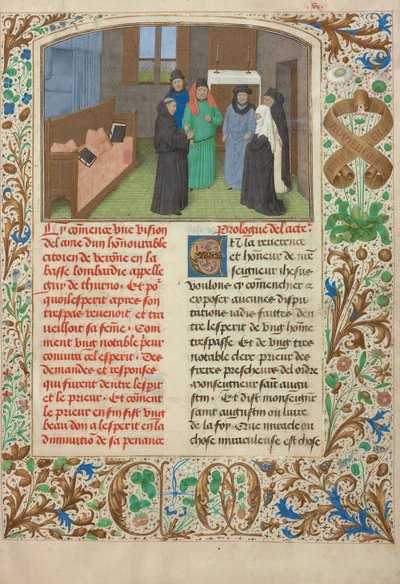 Cy comence une vision
de lame dun honourable
citoien de verone en la
basse lombardie appelle
guy de thurno. Et po²
quoi lesperit apres son
trespas revenoit et tra
veilloit sa feme. Com
ment ung notable peur
coniura cel esperit. Des
demandes et responses
qui furent dentre lesprit
et le prieur. Et coment
le prieur en fin fist ung
beau don a lesperit en la
diminution de sa penance
Prologue del acte²
En la reverence
et honneur de nre
seigneur ihesus
voulons cy comencher a
exposer aucunes dispu
tations iadis faittes. den
tre lesperit de ung home
trespasse. Et de ung tres
notable clerc prieur des
freres prescheurs del ordre
monseigneur saint augu
stin. Et dist monseignr
saint augustin ou livre
de la foy. Que miracle ou
chose miraculeuse est chose